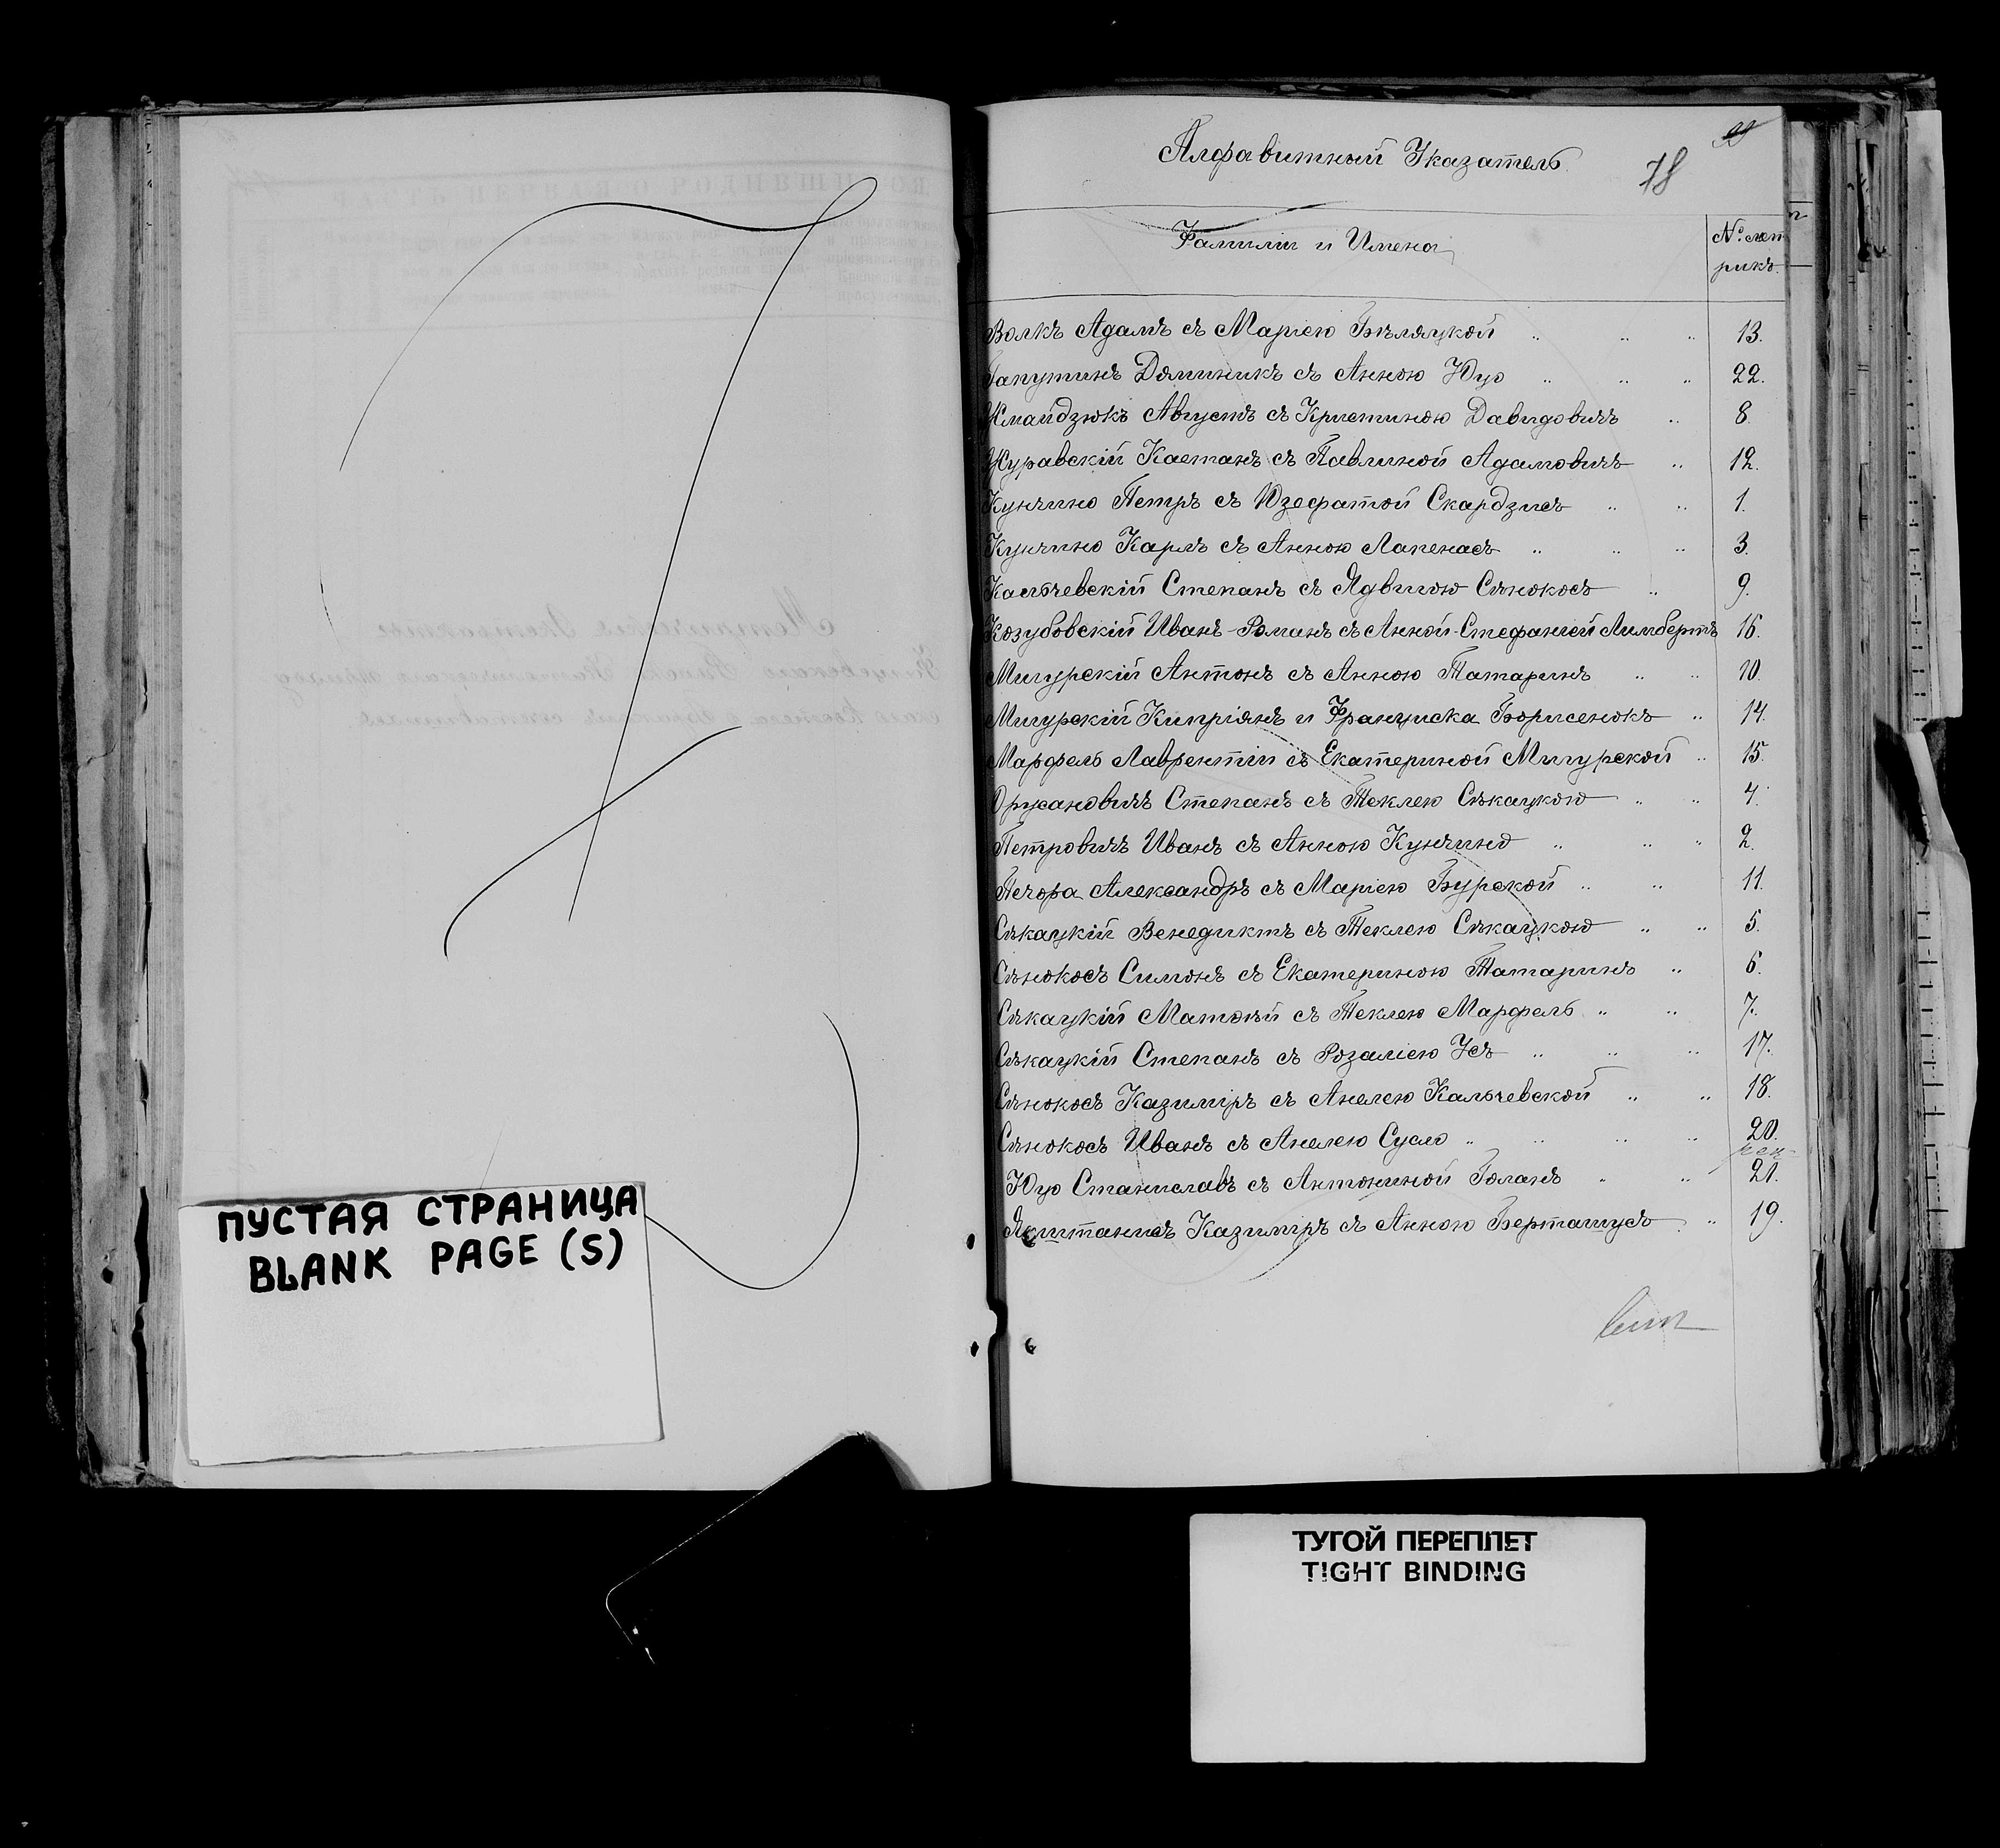 ПУСТАЯ СТРАНИЦА
BLANK PAGE (S)
Алфавитный Указатель
78
Фамиліи и Имена
№ мет
рикъ.
Волкъ Адамъ съ Маріею Бѣляцкой 13.
Гапутинъ Доминикъ съ Анною Юцо 22.
Жмайдзюкъ Августъ съ Кристиною Давидовичъ 8.
Журавскій Каетанъ съ Павлиной Адамовичъ 12.
Кунчино Петръ съ Юзефатой Скардзисъ 1.
Кунчино Карлъ съ Анною Лапенасъ 3.
Кальчевскій Степанъ съ Ядвигою Сѣнокосъ 9.
Козубовскій Иванъ-Романъ съ Анной-Стефаніей Лимбертъ 16.
Мигурскій Антонъ съ Анною Татаринъ 10.
Мигурскій Кипріянъ и Франциска Борисенокъ 14.
Марфель Лаврентій съ Екатериной Мигурской 15.
Степанъ съ Теклею Сѣкацкою 4.
Петровичъ Иванъ съ Анною Кунчино 2.
Печора Александръ съ Маріею Бурской 11.
Сѣкацкій Венедиктъ съ Теклею Сѣкацкою 5.
Сѣнокосъ Симонъ съ Екатериною Татаринъ 6.
Сѣкацкій Матѳѣй съ Теклею Марфель 7.
Сѣкацкій Степанъ съ Розаліею Усъ 17.
Сѣнокосъ Казиміръ съ Анелею Кальчевской 18.
Сѣнокосъ Иванъ съ Анелею Сусло 20.
Юцо Станиславъ съ Антониной Голанъ 21.
Казиміръ съ Анною Берташусъ 19.
ТУГОЙ ПЕРЕПЛЕТ
TIGHT BINDING